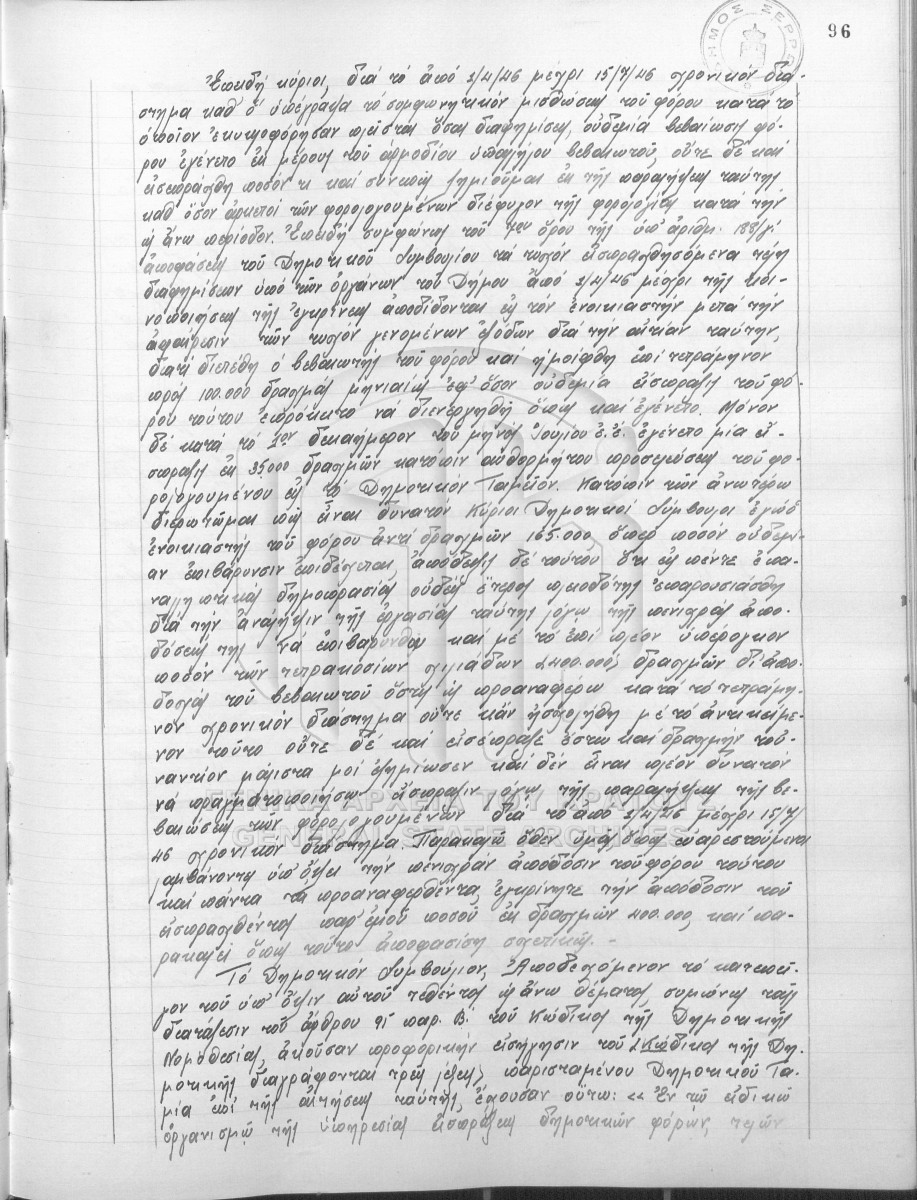 96
ΔΗΜΟΣ ΣΕΡΡΩΝ
Ἐπειδή κύριοι, διά τό ἀπό 2/4/46 μέχρι 15/7/46 χρονικόν διά-
στημα καθ' ὅ ὑπέγραψα τό συμφωνητικόν μισθώσεως τοῦ φόρου κατά τό
ὁποῖον ἐκυκλοφόρησαν πλεῖσται ὅσαι διαφημίσεις, οὐδεμία βεβαίωσις φό-
ρου ἐγένετο ἐκ μέρους τοῦ ἁρμοδίου ὑπαλλήλου βεβαιωτοῦ, οὔτε δέ καί
εἰσεπράχθη ποσόν τι καί συνεπῶς ζημιοῦμαι ἐκ τῆς παραλείψεως ταύτης
καθ' ὅσον ἀρκετοί τῶν φορολογουμένων διέφυγον τῆς φορολογίας κατά τήν
ὡς ἄνω περίοδον. Ἐπειδή συμφώνως τοῦ ὅρου τῆς ὑπ' ἀριθμ. 188/
ἀποφάσεως τοῦ Δημοτικοῦ Συμβουλίου τά τυχόν εἰσπραχθησόμενα τέλη
διαφημίσεων ὑπό τῶν ὀργάνων τοῦ Δήμου ἀπό 2/4/46 μέχρι τῆς κοι-
νοποιήσεως τῆς ἐγκρίσεως ἀποδίδονται εἰς τόν ἐνοικιαστήν μετά τήν
ἀφαίρεσιν τῶν τυχόν γενομένων ἐξόδων διά τήν αἰτίαν ταύτην,
διατί διετέθη ὁ βεβαιωτής τοῦ φόρου καί ἠμοίφθη ἐπί τετράμηνον
πρός 100.000 δραχμάς μηνιαίως ἐφ' ὅσον οὐδεμία εἴσπραξις τοῦ φό-
ρου τούτου ἐπρόκειτο νά διενεργηθῇ ὅπως καί ἐγένετο. Μόνον
δέ κατά τό 1ον δεκαήμερον τοῦ μηνός Ἰουλίου ἐ.ἔ. ἐγένετο μία εἴ-
σπραξις ἐκ 35.000 δραχμῶν κατόπιν αὐθορμήτου προσελεύσεως τοῦ φο-
ρολογουμένου εἰς τό Δημοτικόν Ταμεῖον. Κατόπιν τῶν ἀνωτέρω
διερωτῶμαι πῶς εἶναι δυνατόν Κύριοι Δημοτικοί Σύμβουλοι ἐγώ ὁ
ἐνοικιαστής τοῦ φόρου ἀντί δραχμῶν 165.000 ὅπερ ποσόν οὐδεμί-
αν ἐπιβάρυνσιν ἐπιδέχεται, ἀπόδειξις δέ τούτου ὅτι εἰς πέντε ἐπα-
ναληπτικάς δημοπρασίας οὐδείς ἕτερος πλειοδότης ἐπαρουσιάσθη
διά τήν ἀνάληψιν τῆς ἐργασίας ταύτης λόγω τῆς πενιχρᾶς ἀπο-
δόσεώς της νά ἐπιβαρυνθῶ καί μέ τό ἐπί πλέον ὑπέρογκον
ποσόν τῶν τετρακοσίων χιλιάδων (400.000) δραχμῶν δι' ἀπο-
δοχάς τοῦ βεβαιωτοῦ ὅστις ὡς προαναφέρω κατά τό τετράμη-
νον χρονικόν διάστημα οὔτε κἄν ἠσχολήθη μέ τό ἀντικείμε-
νον τοῦτο οὔτε δέ καί εἰσέπραξε ἔστω καί δραχμήν τοὐ-
ναντίον μάλιστα μοί ἐζημίωσεν καί δέν εἶναι πλέον δυνατόν
νά πραγματοποιήσω εἴσπραξιν λόγω τῆς παραλείψεως τῆς βε-
βαιώσεως τῶν φορολογουμένων διά τό ἀπό 2/4/46 μέχρι 15/7/
46 χρονικόν διάστημα. Παρακαλῶ ὅθεν ὑμᾶς ὅπως εὐαρεστούμενοι
λαμβάνοντες ὑπ' ὄψει τήν πενιχράν ἀπόδοσιν τοῦ φόρου τούτου
καί πάντα τά προαναφερθέντα, ἐγκρίνητε τήν ἀπόδοσιν τοῦ
εἰσπραχθέντος παρ' ἐμοῦ ποσοῦ ἐκ δραχμῶν 400.000, καί πα-
ρακαλεῖ ὅπως τοῦτο ἀποφασίσῃ σχετικῶς.-
Τό Δημοτικόν Συμβούλιον, Ἀποδεχόμενον τό κατεπεῖ-
γον τοῦ ὑπ' ὄψιν αὐτοῦ τεθέντος ὡς ἄνω θέματος, συμφώνως ταῖς
διατάξεσιν τοῦ ἄρθρου 91 παρ. β' τοῦ Κώδικος τῆς Δημοτικῆς
Νομοθεσίας, ἀκοῦσαν προφορικήν εἰσήγησιν τοῦ (Κώδικος τῆς Δη-
μοτικῆς διαγράφονται τρεῖς λέξεις) παρισταμένου Δημοτικοῦ Τα-
μία ἐπί τῆς αἰτήσεως ταύτης, ἔχουσαν οὕτω: «Ἐν τῷ εἰδικῷ
ὀργανισμῷ τῆς ὑπηρεσίας εἰσπράξεως δημοτικῶν φόρων, τελῶν
ΓΕΝΙΚΑ ΑΡΧΕΙΑ ΤΟΥ ΚΡΑΤΟΥΣ
GENERAL STATE ARCHIVES